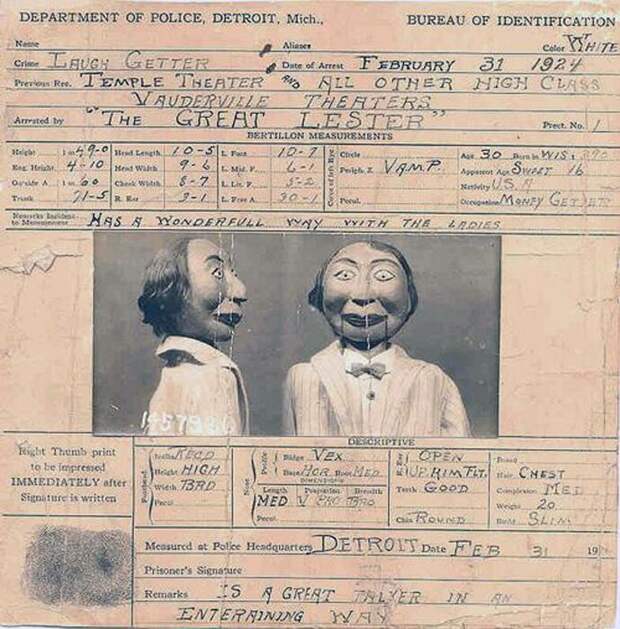 DEPARTMENT OF POLICE, DETROIT, Mich., BUREAU OF IDENTIFICATION
Name Aliases Color WHITE
Crime LAUGH GETTER Date of Arrest FEBRUARY 31 1924
Previous Rec. TEMPLE THEATER AND ALL OTHER HIGH CLASS
VAUDERVILLE THEATERS
Arrested by "THE GREAT LESTER" Prect. No. 1
BERTILLON MEASUREMENTS
Height 1 m 49-0 Head Length 10-5 L. Foot 10-7 Circle Age 30 Born in WIS
Eng. Height 4-10 Head Width 9-6 L. Mid. F. 6-1 Periph. Z VAMP. Apparent Age SWEET 16
Outside A 1 m. 60 Cheek Width 8-7 L. Lit. F. 5-2 Nativity U.S.A
Trunk 71-5 R. Ear 3-1 L. Fore A. 30-1 Pecul. Occupation MONEY GETTER
Remarks Incident to Measurement HAS A WONDERFULL WAY WITH THE LADIES
DESCRIPTIVE
Right Thumb print
to be impressed
IMMEDIATELY after
Signature is written
Inclin. RECD Ridge VEX OPEN
Height HIGH Base HOR. Root MED UP. RIM FLT. Hair CHEST
DIMENSIONS
Width BRD Length Projection Breadth Teeth GOOD Complexion MED
MED Weight 20
Pecul. Pecul. Chin ROUND Build SLIM
Measured at Police Headquarters, DETROIT Date FEB 31 19
Prisoner's Signature
Remarks IS A GREAT TALKER IN AN
ENTERAINING WAY